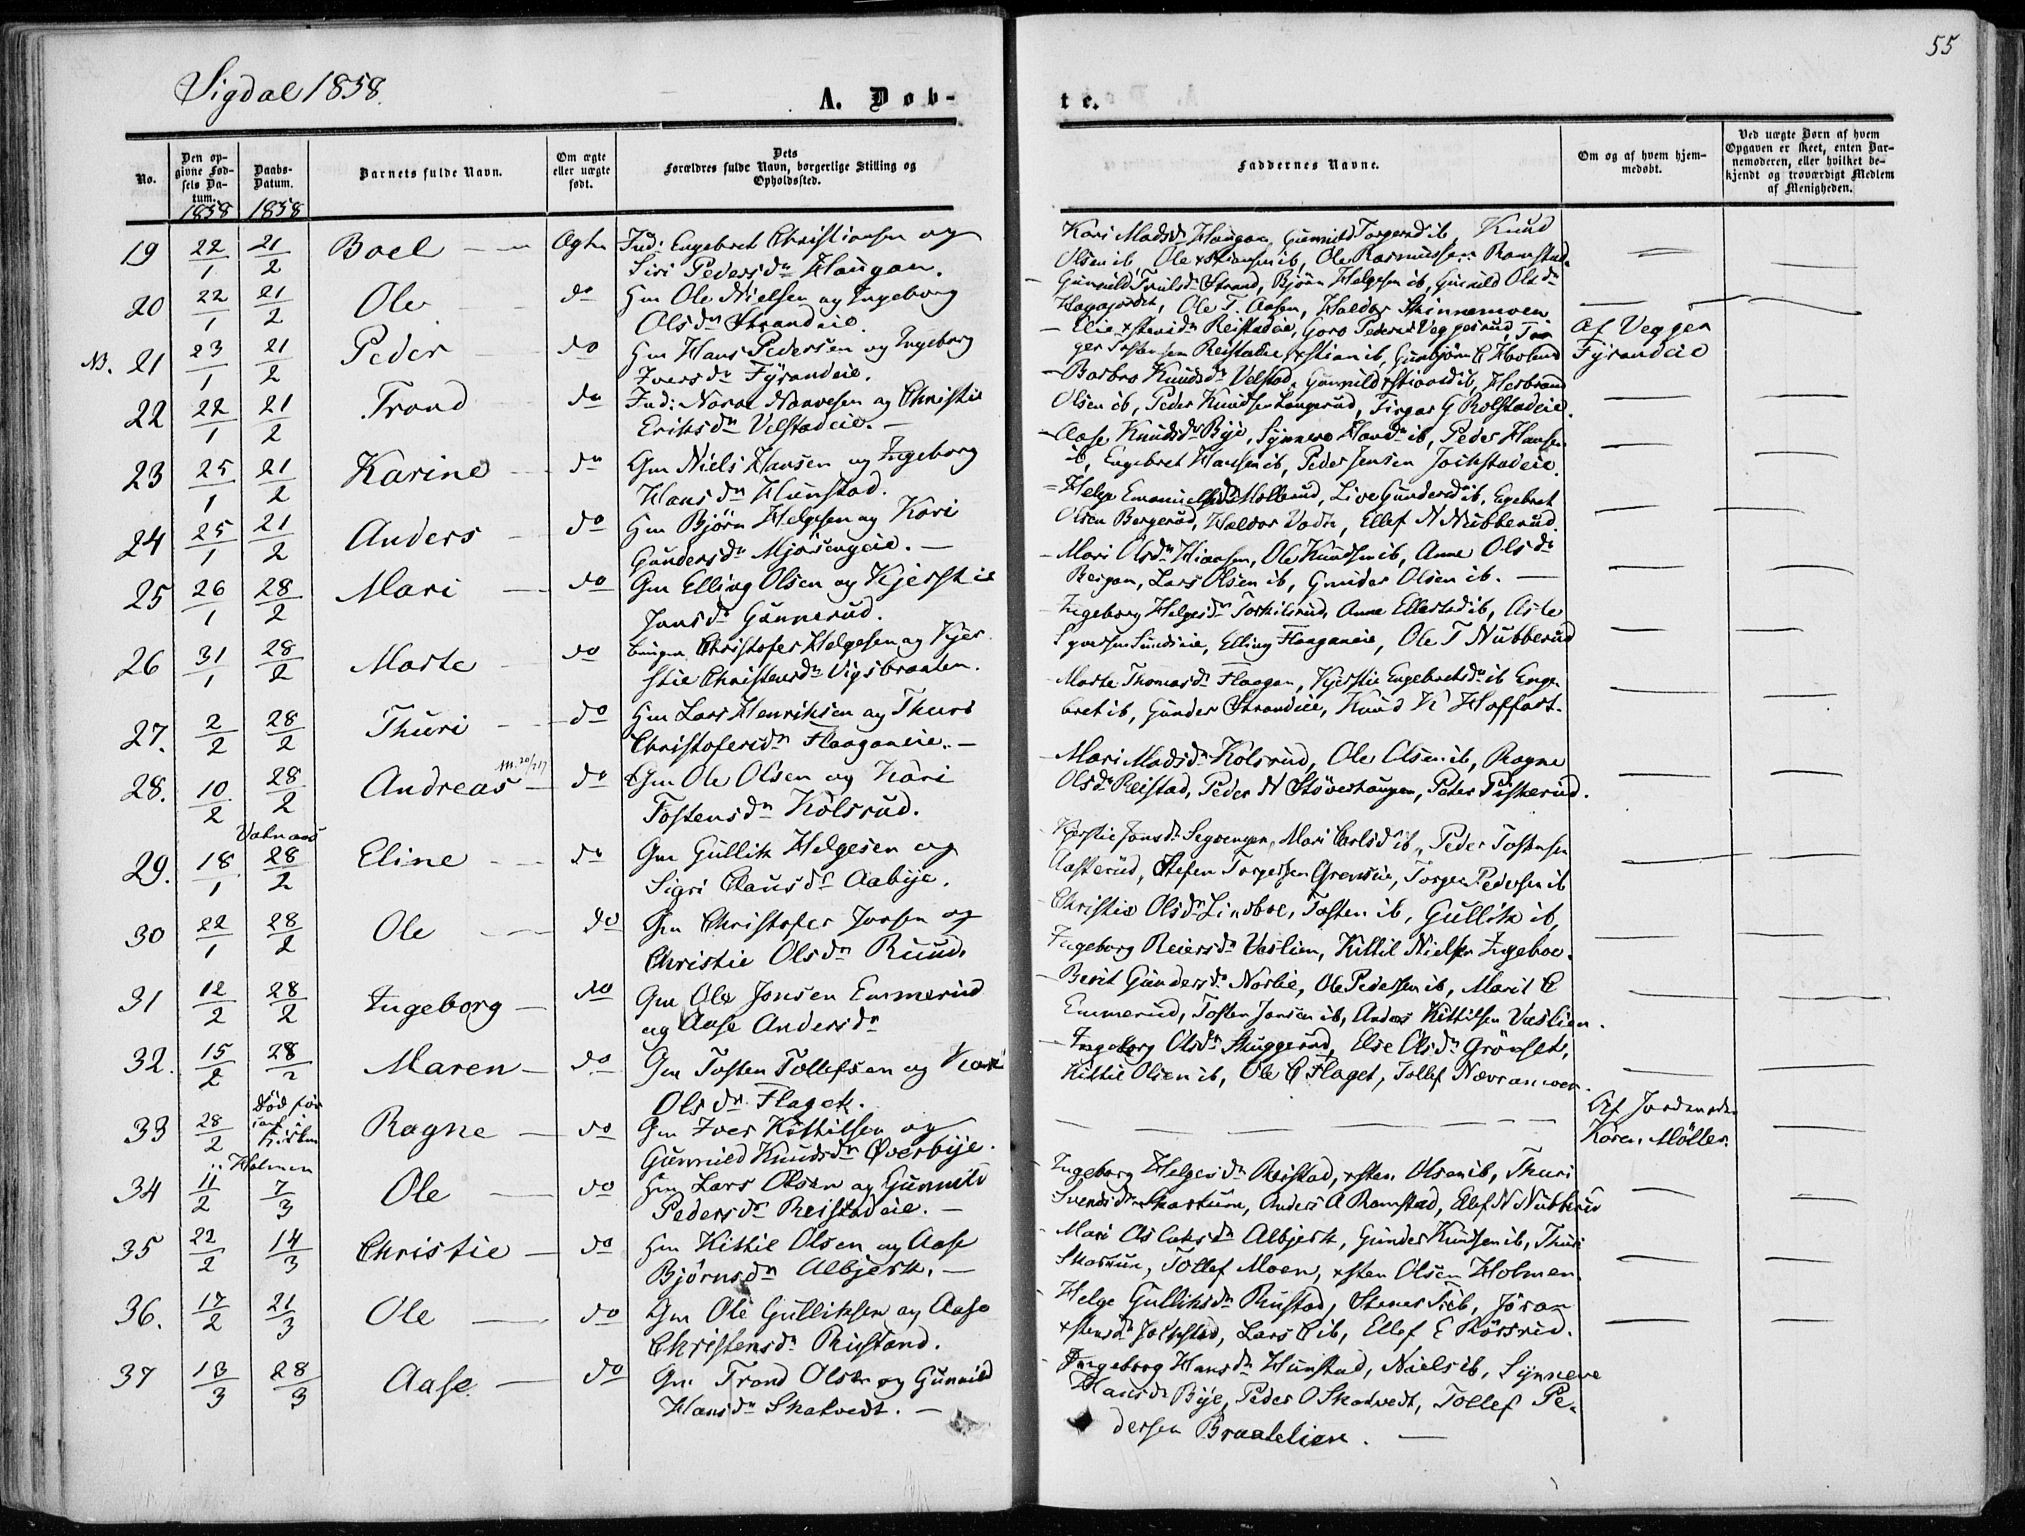 Sigdal 1858.
A. Døb-
te.
55
No.
Den op-
givne Fød-
sels Da-
tum.
1858
Daabs-
Datum.
1858
Barnets fulde Navn.
Om ægte
eller uægte
født.
Dets
Forældres fulde Navn, borgerlige Stilling og
Opholdssted.
Faddernes Navne.
Om og af hvem hjem-
medøbt.
Ved uægte Børn af hvem
Opgaven er skeet, enten Bar-
nemoderen, eller hvilket be-
kjendt og troværdigt Medlem
af Menigheden.
19 22/1 21/2 Boel Ægte Ind: Engebret Christiansen og
Siri Pedersdn Haugan.
Kari Madsd Haugan, Gunnild Torgersd ib, Knud
Olsen ib, Ole xstiansen ib, Ole Rasmussen Ramstad.
20 22/1 21/2 Ole do Gm Ole Nielsen og Ingeborg
Olsdn Strandeie.
Gunnild Trulsdn Strand, Bjørn Helgesen ib, Gunild Olsdn
Hagajordet, Ole T. Aasen, Haldor Skinnemoen
NB. 21 23/1 21/2 Peder do Gm Hans Pedersen og Ingeborg
Iversdn Fyrandeie.
Elie xstensdn Reistadeie, Goro Pedersd Veggesrud, Tor
ger Tostensen Reistadeie, xstian ib, Gunbjørn C Hovland
Af Vegger
Fyrandeie
22 22/1 21/2 Trond do Ind: Narve Narvesen og Christie
Eriksdn Velstadeie.
Barbro Knudsdn Velstad, Gunnild xstiansd ib, Herbrand
Olsen ib, Peder Knudsen Langerud, Tirgar G Rolstadeie.
23 25/1 21/2 Karine do Gm Niels Hansen og Ingeborg
Hansdn Hunstad.
Aase Knudsdn Bye, Synnere Hansdn ib, Peder Hansen
ib, Engebret Hansen ib, Peder Jensen Jockstadeie.
24 25/1 21/2 Anders do Gm Bjørn Helgesen og Kari
Gundersdn Mjøsengeie.
Helge Emanuelsdn Mollerud, Live Gundersd ib, Engebret
Olsen Bergerud, Haldor Vada, Ellef N Nubberud.
25 26/1 28/2 Mari do Gm Elling Olsen og Kjerstie
Jonsdn Gunnerud.
Mari Olsdn Hiaasen, Ole Knudsen ib, Anne Olsdn
Bergan, Lars Olsen ib, Gunder Olsen ib.
26 31/1 28/2 Marte do Christofer Helgesen og Kjer
stie Christensdn Vigsbraaten.
Ingeborg Helgesdn Torkilsrud, Anne Ellefsd ib, Asle
Syversen Sundeie, Elling Flaaganeie, Ole T Nubberud
27. 2/2 28/2 Thuri do Gm Lars Henriksen og Thuri
Christofersdn Flaaganeie.
Marte Thomasdn Flaagan, Kjerstie Engebretsdn ib Enge
bret ib, Gunder Strandeie, Knud K Hoffart.
28. 10/2 28/2 Andreas do Gm Ole Olsen og Kari
Tostensdn Kolsrud.
Mari Madsdn Kolsrud, Ole Olsen ib, Ragne
Olsdn Reistad, Peder N Støveshaugen, Peter Fiskerud.
Vatnaas
29. 18/1 28/2 Eline do Gm Gullik Helgesen og
Sigri Clausdn Aabye.
Kjerstie Jonsdn Segrengen, Mari Carlsd ib, Peder Tostensen
Aasterud, Stefen Torgersen Grenseie, Torger Pedersen ib
30 22/1 28/2 Ole do Gm Christofer Jonsen og
Christie Olsdn Ruud.
Christie Olsdn Lindboe, Tosten ib, Gullik ib,
Ingeborg Reiersdn Vaslien, Kittil Nielsen Ingeboe.
31 12/2 28/2 Ingeborg do Gm Ole Jonsen Emmerud
og Aase Andersdn
Berit Gundersdn Norlie, Ole Pedersen ib, Marit C
Emmerud, Tosten Jonsen ib, Anders Kittilsen Vaslien.
32. 15/2 28/2 Maren do Gm Tosten Tollefsen og Kari
Olsdn Flaget.
Ingeborg Olsdn Skuggerud, Else Olsdn Grønset,
Kittil Olsen ib, Ole C Flaget, Tollef Nævramoen.
33 28/2 Død før
i Kirken Ragne do Gm Iver Kittilsen og
Gunnild Knudsdn Øverbye.
Af Jordemoder
Karen Møller.
Holmen
34 11/2 7/3 Ole do Gm Lars Olsen og Gunnild
Pedersdn Reistadeie.
Ingeborg Helgesdn Reistad, xsten Olsen ib, Thuri
Svensdn Skartum, Anders A Ramstad, Ellef N Nubberud
35 22/2 14/3 Christie do Gm Kittil Olsen og Aase
Bjørnsdn Albjerk.
Mari Aslaksdn Albjerk, Gunder Knudsen ib, Thuri
Skartun, Tollef Moen, xsten Olsen Holmen
36. 17/2 21/3 Ole do Gm Ole Gulliksen og Aase
Christensdn Rustand.
Helge Gulliksdn Rustad, Stener ib, Jøran
xstensdn Jockstad, Lars C ib, Ellef E Korsrud.
37 13/3 28/3 Aase do Gm Trond Olsen og Gunnild
Hansdn Skatvedt.
Ingeborg Hansdn Hunstad, Niels ib, Synneve
Hansdn Bye, Peder O Skatvedt, Tollef Pe-
dersen Braatelien.